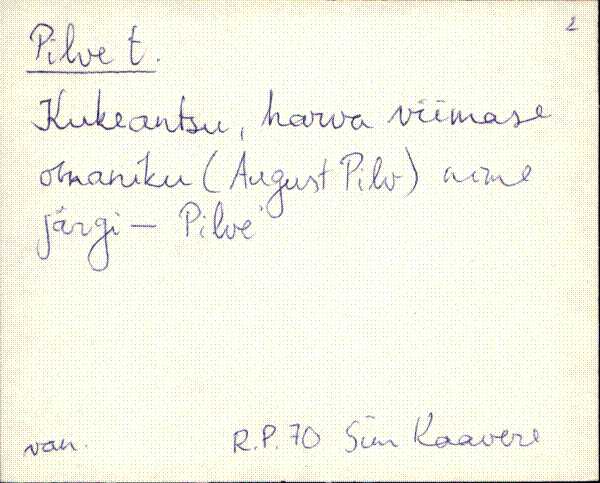 2
Pilve t.
Kukeantsu, harva viimase
omaniku (August Pilv) nime
järgi — Pilve
van. R.P. 70 Siin Kaavere